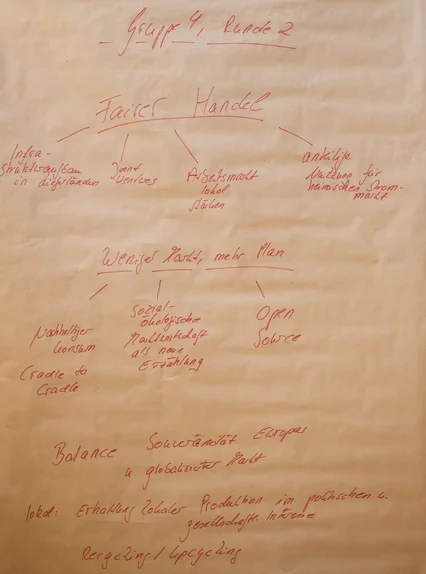 Gruppe 4, Runde 2
Fairer Handel
Infra-
strukturaufbau
in
Joint
Ventures
Arbeitsmarkt
lokal
stärken
anteilige
Nutzung für
heimischen Strom-
markt
Weniger Markt, mehr Plan
Nachhaltiger
Konsum
Cradle to
Cradle
Sozial-
ökologische
Marktwirtschaft
als neue
Erzählung
Open
Source
Balance Souveränität Europas
u. globalisierter Markt
lokal: Erhaltung lokaler Produktion im politischen u.
gesellschaftl. Interesse
Recycling / Upcycling